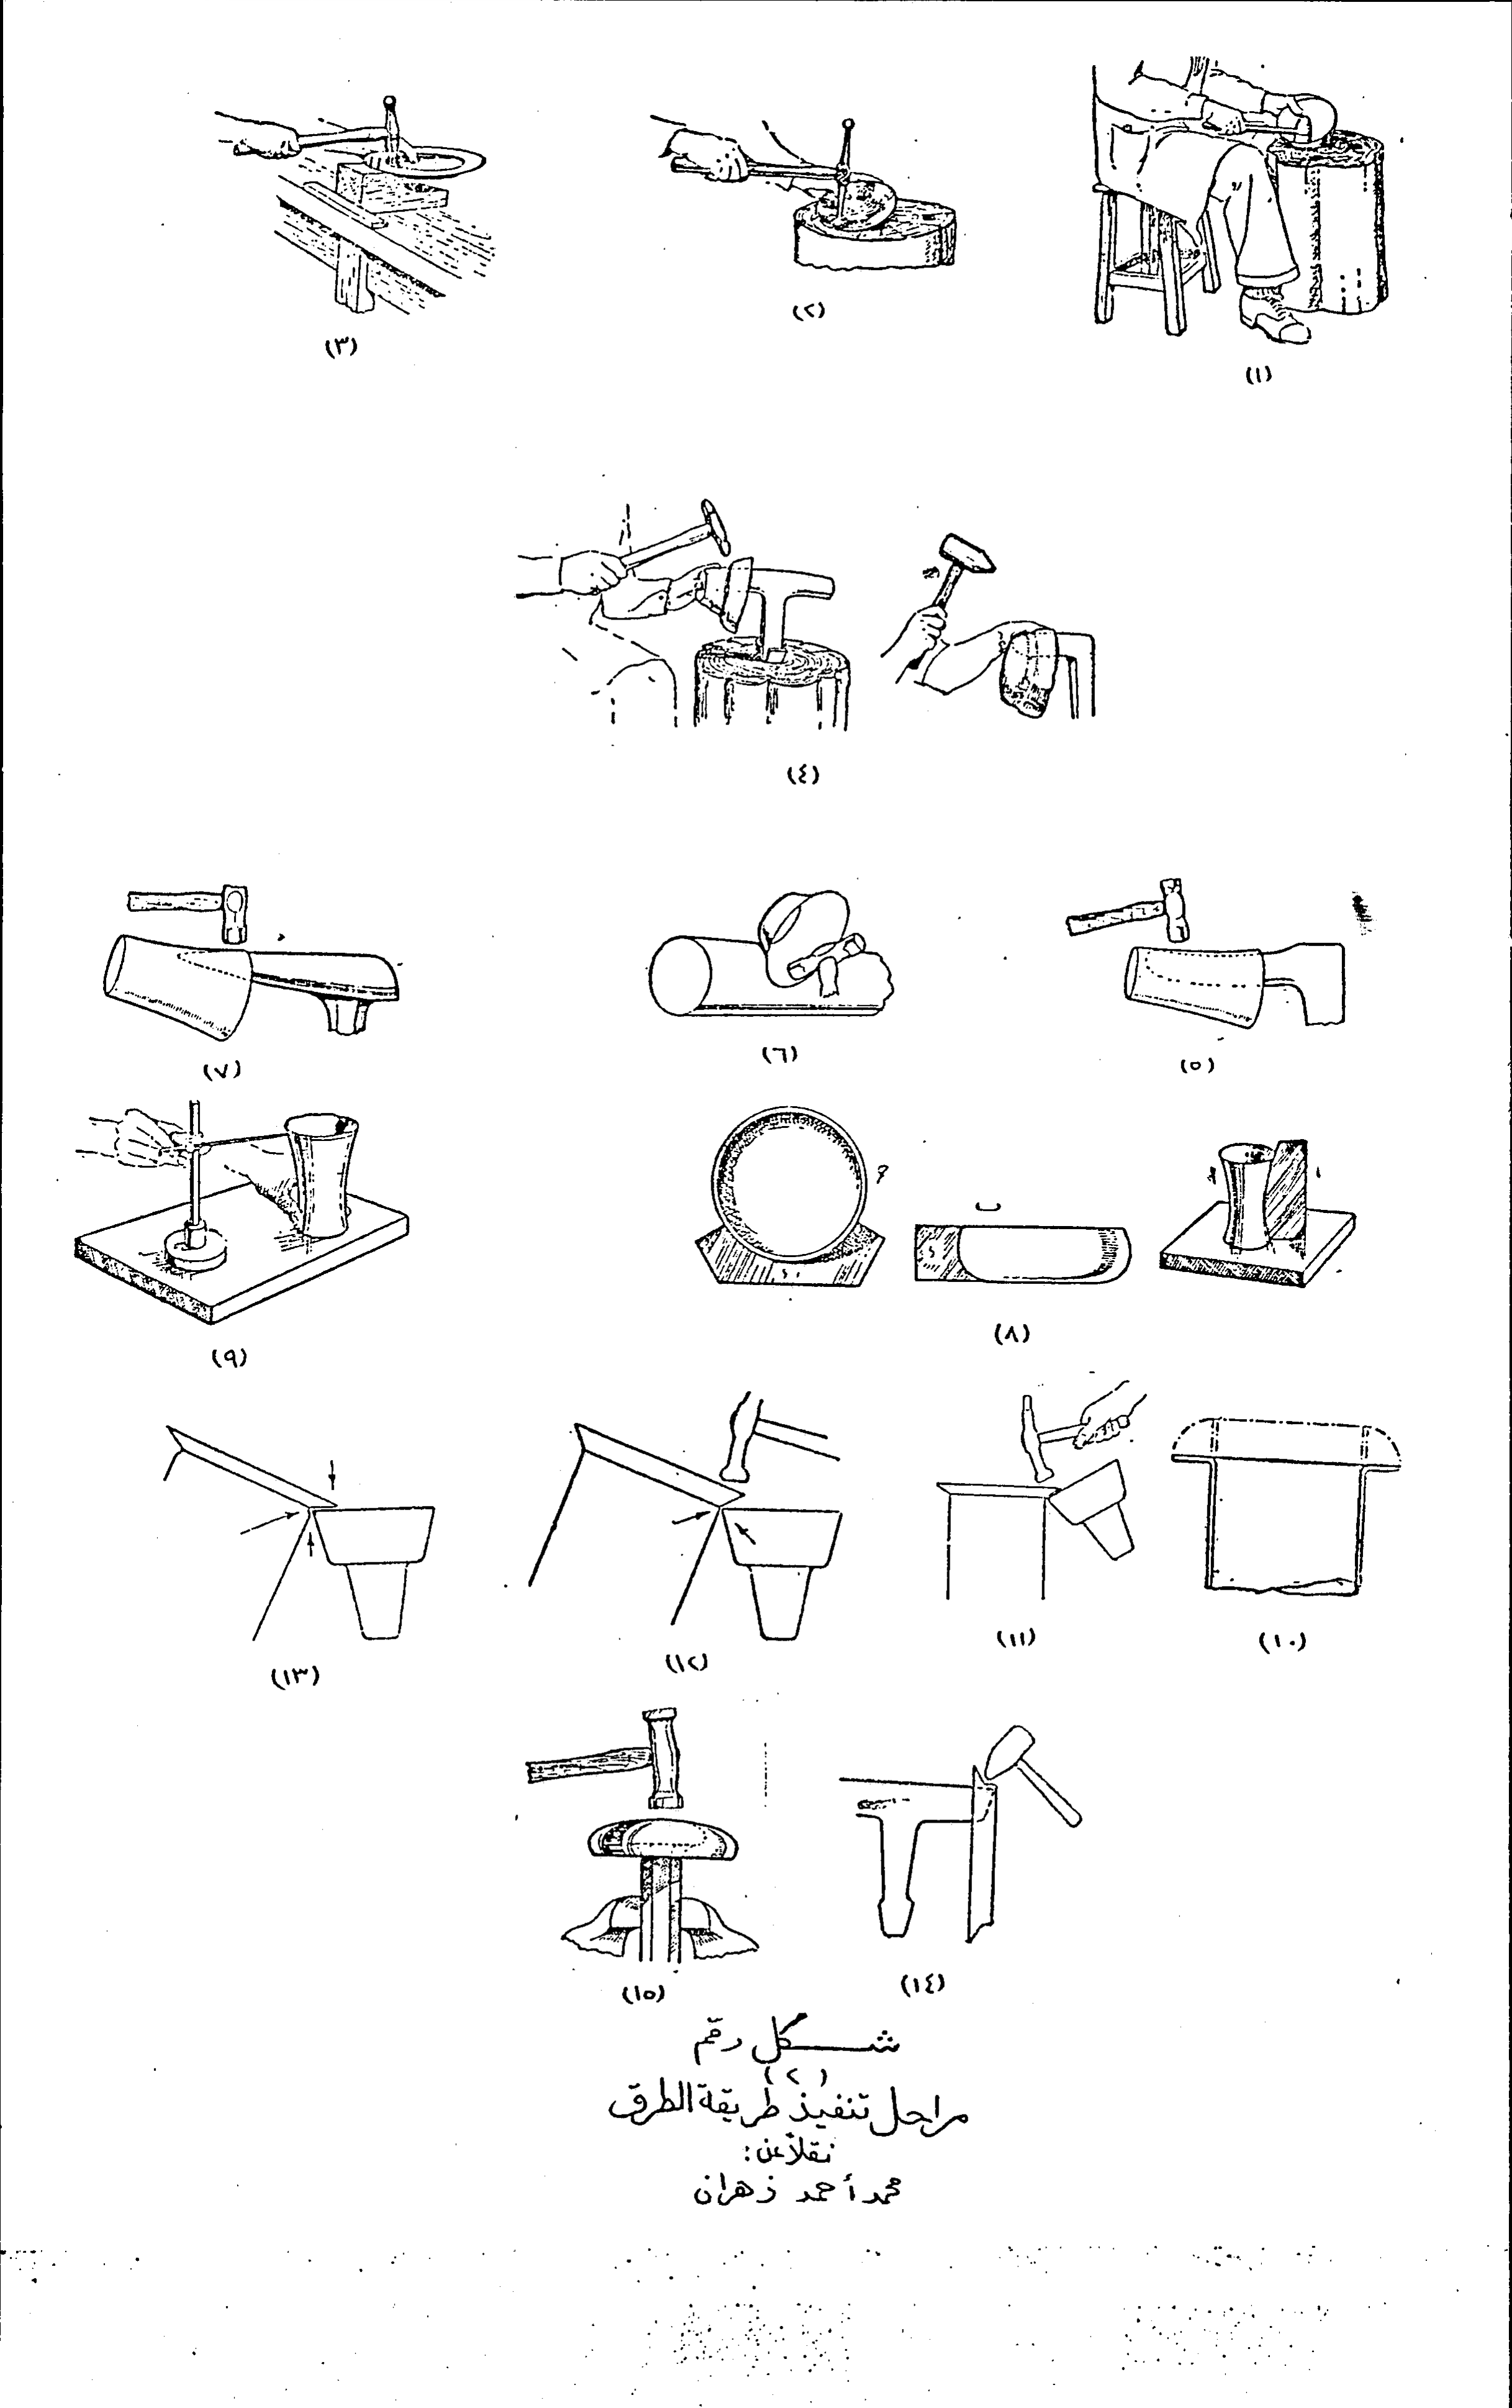 (١)
(٢)
(٣)
(٤)
(٥)
(٦)
(٧)
(٨)
(٩)
(١٠)
(١١)
(١٢)
(١٣)
(١٤)
(١٥)
شكل رقم
(٢)
مراحل تنفيذ طريقة الطرق
نقلاً عن:
محمد أحمد زهران